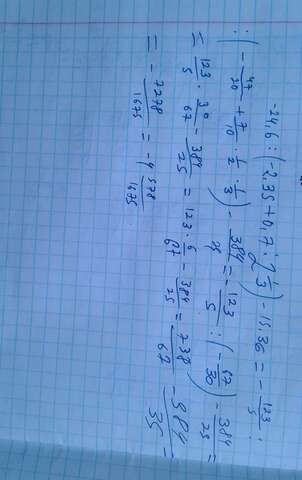 -24,6 : (-2,35+0,7 : 2 1/3) - 15,36 = - 123/5 :
: (- 47/20 + 7/10 · 1/2 · 1/3) - 384/25 = - 123/5 : (- 67/30) - 384/25 =
= 123/5 · 30/67 - 384/25 = 123 · 6/67 - 384/25 = 738/67 - 384/25 =
= - 7278/1675 = -4 578/1675